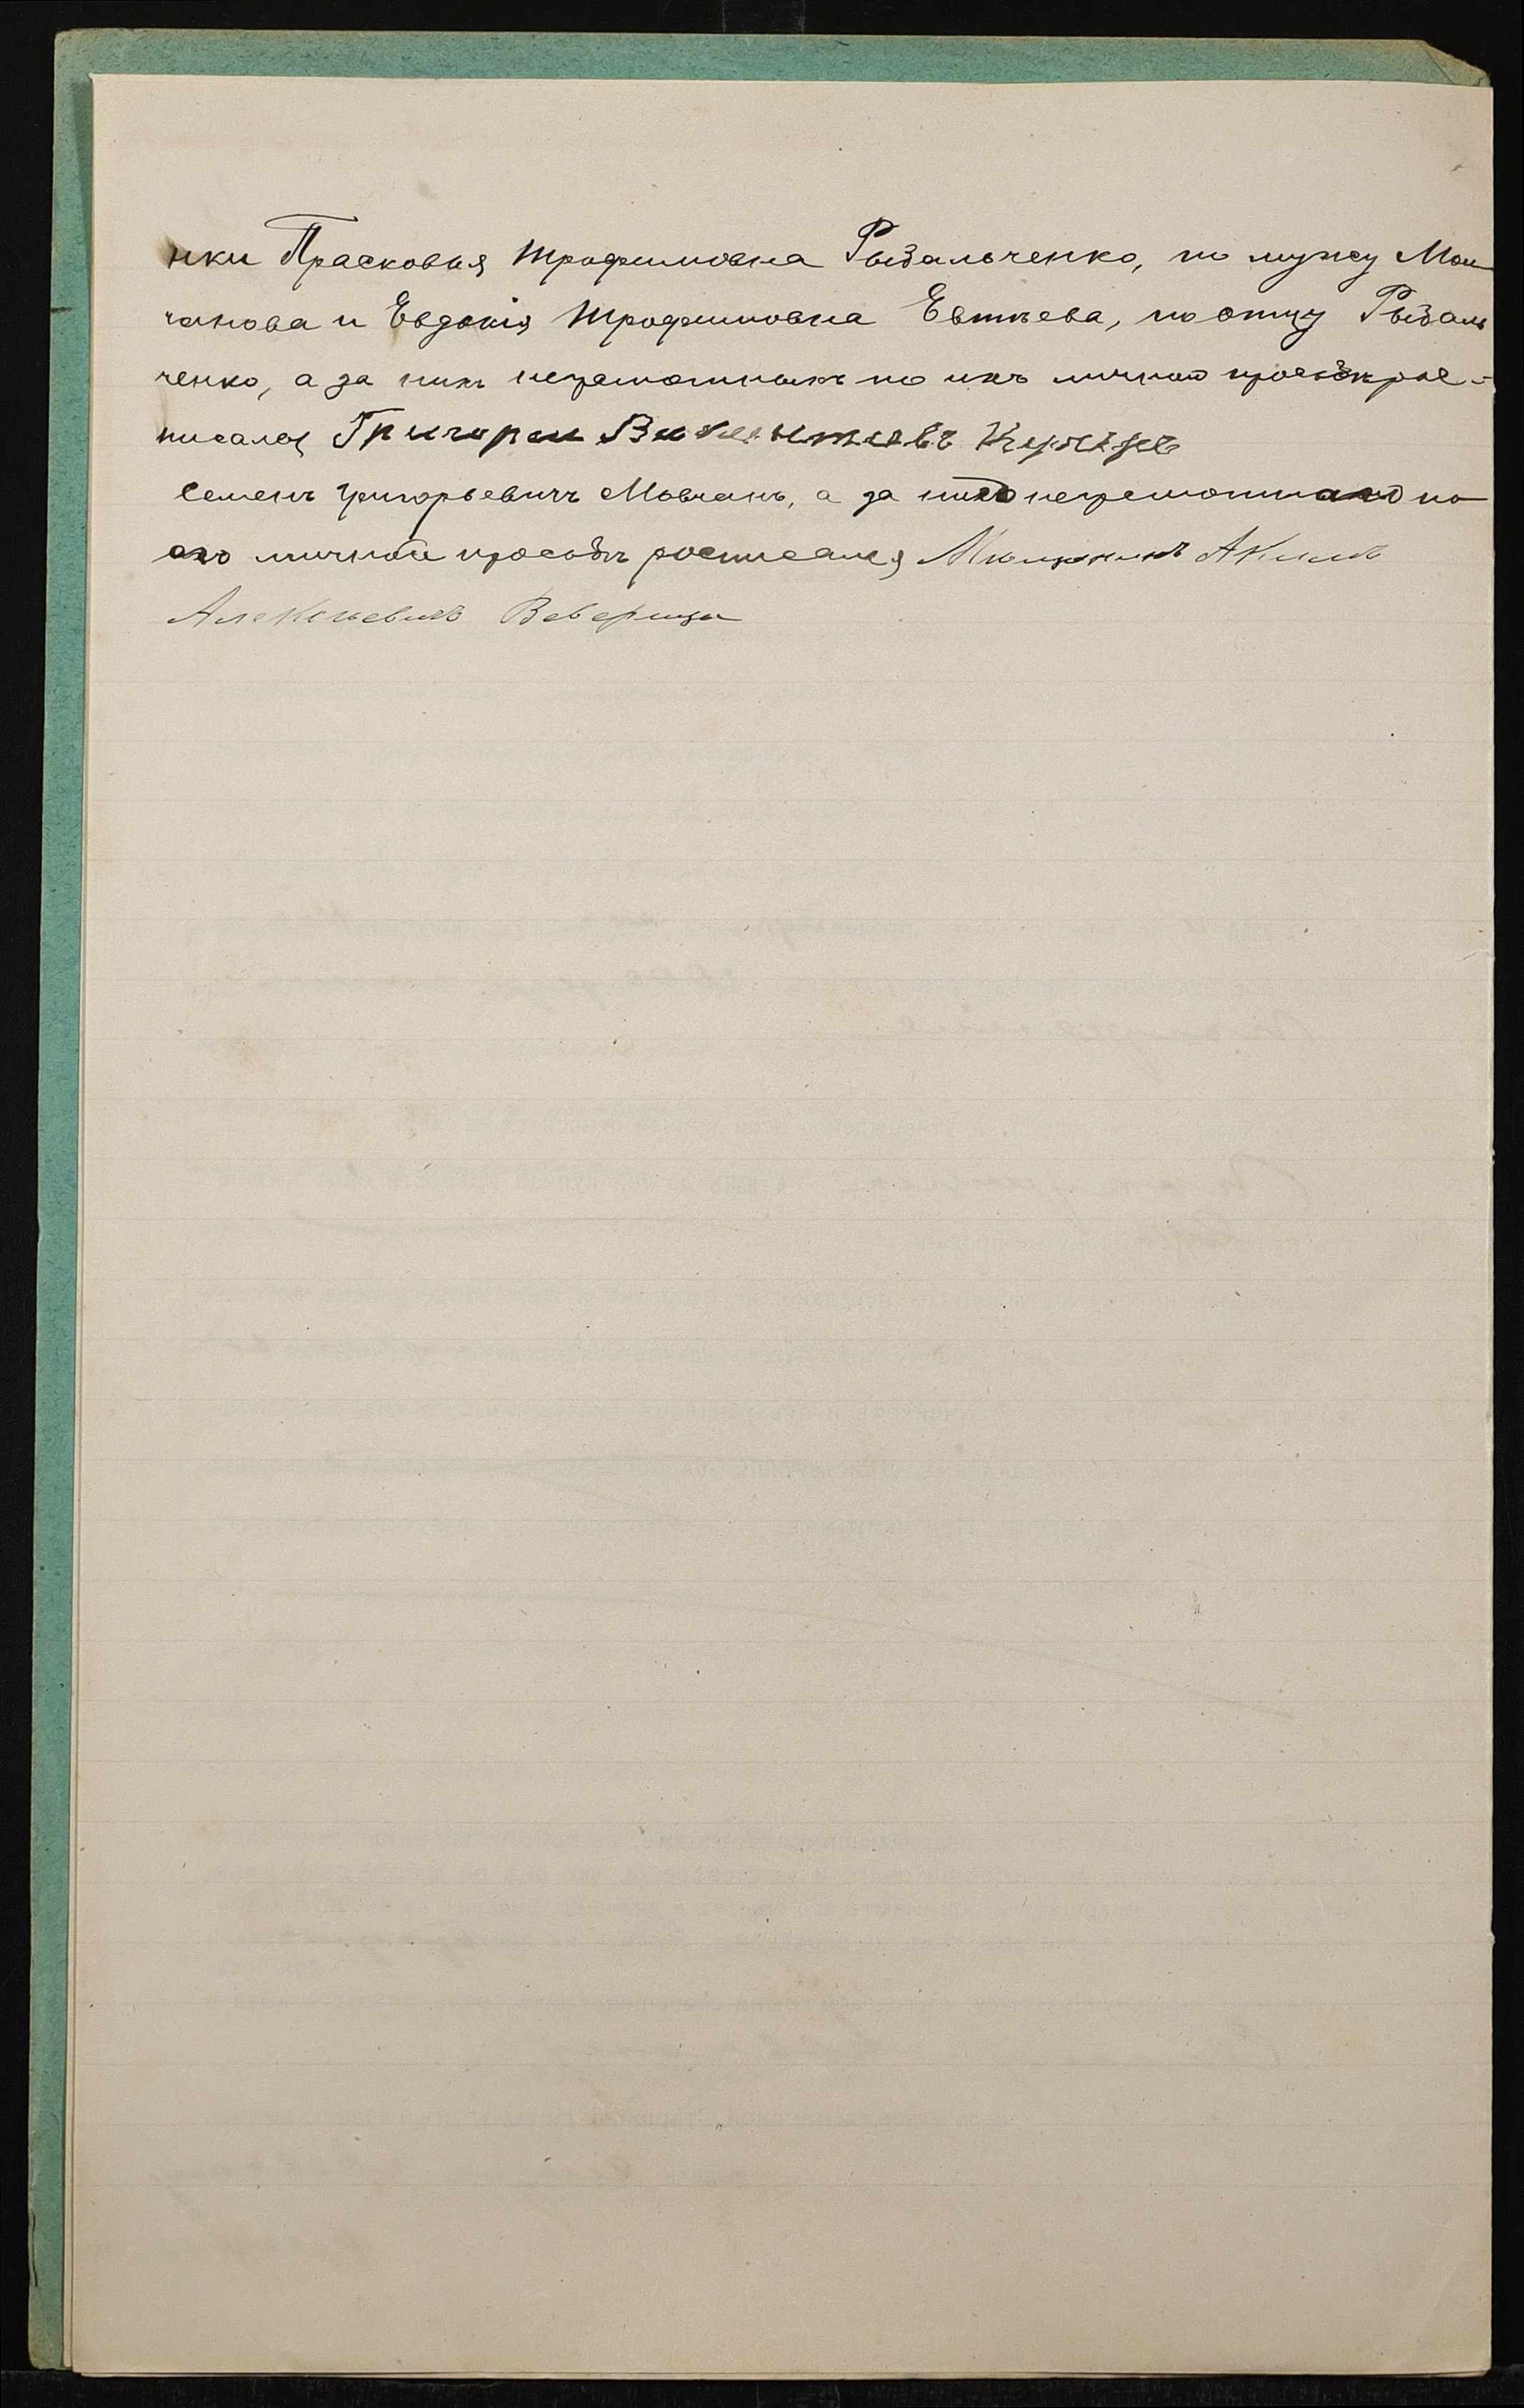 нки Прасковья Трофимовна Рыбальченко, по мужу Мол
чанова и Евдокія Трофимовна Евтѣева, по отцу Рыбаль
ченко, а за нихъ неграмотныхъ по ихъ личной просьбѣ рос-
писался Григорий
Семенъ Григорьевичъ Мовчанъ, а за него неграмотнаго по
его личной просьбѣ росписался Мѣщанинъ Акимъ
Алексѣевичъ Веверица